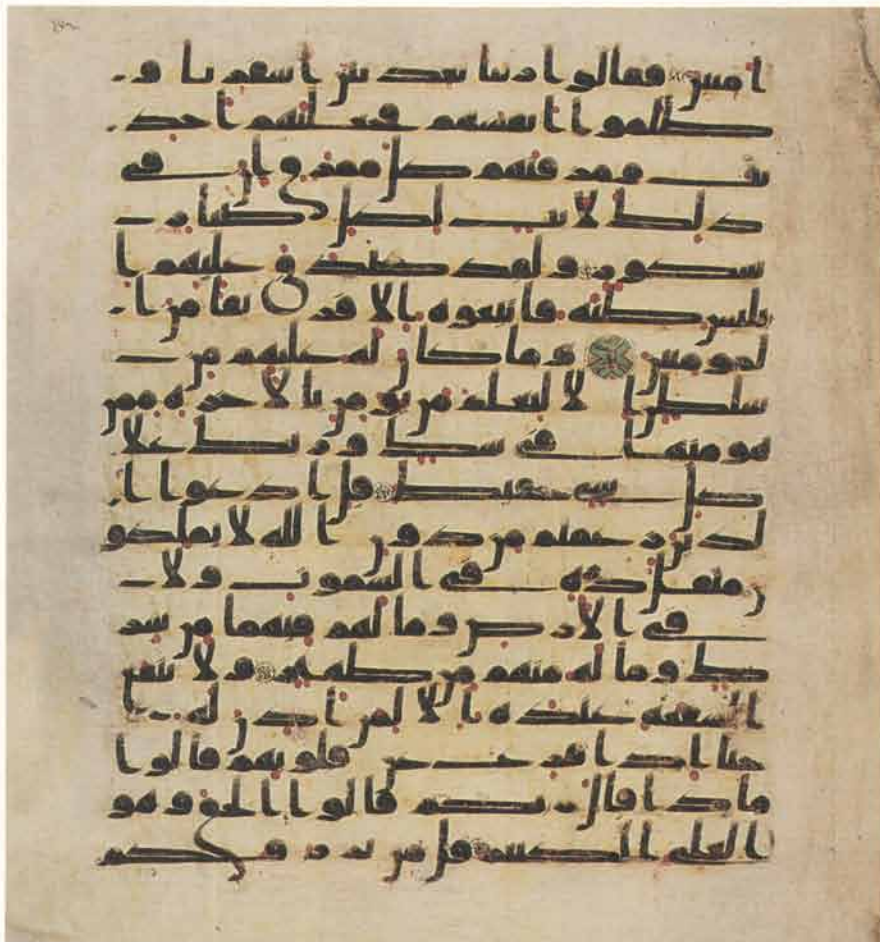 امنين فقالوا ربنا بعد بين اسفرنا و
ظلموا انفسهم فجعلنهم احد
يث ومزقنهم كل ممزق ان في
ذلك لايت لكل صبار
شكور ولقد صدق عليهم ا
بليس ظنه فاتبعوه الا فريقا من ا
لمومنين وما كان له عليهم من
سلطن الا لنعلم من يومن بالاخره ممن
هو منها في شك وربك علا
كل شي حفيظ قل ادعوا ا
لذين زعمتم من دون الله لا يملكو
ن مثقال ذره في السموت ولا
في الارض وما لهم فيهما من شر
ك وما له منهم من ظهير ولا تنفع
الشفعه عنده الا لمن اذن له
حتا اذا فزع عن قلوبهم قالوا
ماذا قال ربكم قالوا الحق وهو
العلي الكبير قل من يرزقكم